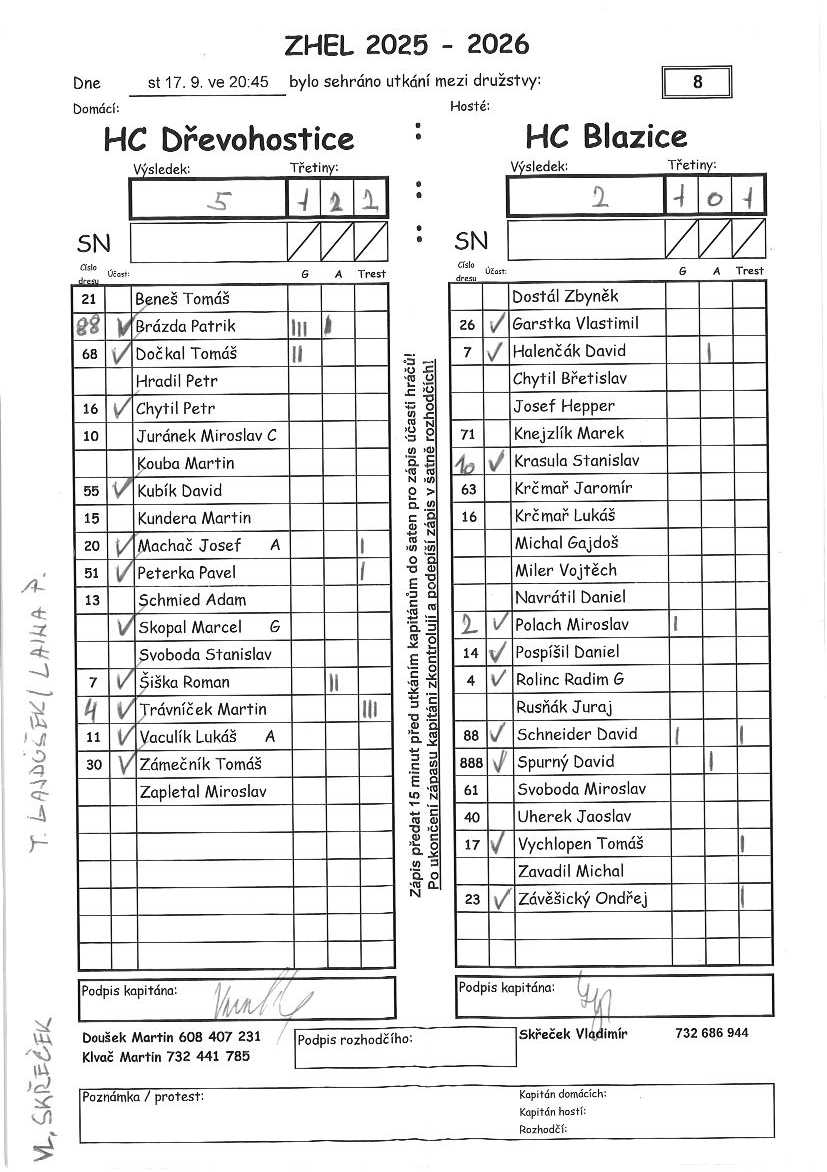 ZHEL 2025 - 2026
Dne st 17. 9. ve 20:45 bylo sehráno utkání mezi družstvy: 8
Domácí: Hosté:
HC Dřevohostice : HC Blazice
Výsledek: Třetiny: Výsledek: Třetiny:
5 1 2 2 : 2 1 0 1
SN : SN
Číslo dresu Účast: G A Trest Číslo dresu Účast: G A Trest
21 Beneš Tomáš
88 ✓ Brázda Patrik III I
68 ✓ Dočkal Tomáš II
Hradil Petr
16 ✓ Chytil Petr
10 Juránek Miroslav C
Kouba Martin
55 ✓ Kubík David
15 Kundera Martin
20 ✓ Machač Josef A I
51 ✓ Peterka Pavel I
13 Schmied Adam
✓ Skopal Marcel G
Svoboda Stanislav
7 ✓ Šiška Roman II
4 ✓ Trávníček Martin III
11 ✓ Vaculík Lukáš A
30 ✓ Zámečník Tomáš
Zapletal Miroslav
Zápis předat 15 minut před utkáním kapitánům do šaten pro zápis účasti hráčů!
Po ukončení zápasu kapitáni zkontrolují a podepíší zápis v šatně rozhodčích!
Dostál Zbyněk
26 ✓ Garstka Vlastimil
7 ✓ Halenčák David I
Chytil Břetislav
Josef Hepper
71 Knejzlík Marek
10 ✓ Krasula Stanislav
63 Krčmař Jaromír
16 Krčmař Lukáš
Michal Gajdoš
Miler Vojtěch
Navrátil Daniel
2 ✓ Polach Miroslav I
14 ✓ Pospíšil Daniel
4 ✓ Rolinc Radim G
Rusňák Juraj
88 ✓ Schneider David I I
888 ✓ Spurný David I
61 Svoboda Miroslav
40 Uherek Jaoslav
17 ✓ Vychlopen Tomáš I
Zavadil Michal
23 ✓ Závěšický Ondřej I
Podpis kapitána: Podpis kapitána:
Doušek Martin 608 407 231
Klvač Martin 732 441 785
Podpis rozhodčího:
Skřeček Vladimír 732 686 944
Poznámka / protest:
Kapitán domácích:
Kapitán hostí:
Rozhodčí:
VL, SKŘEČEK